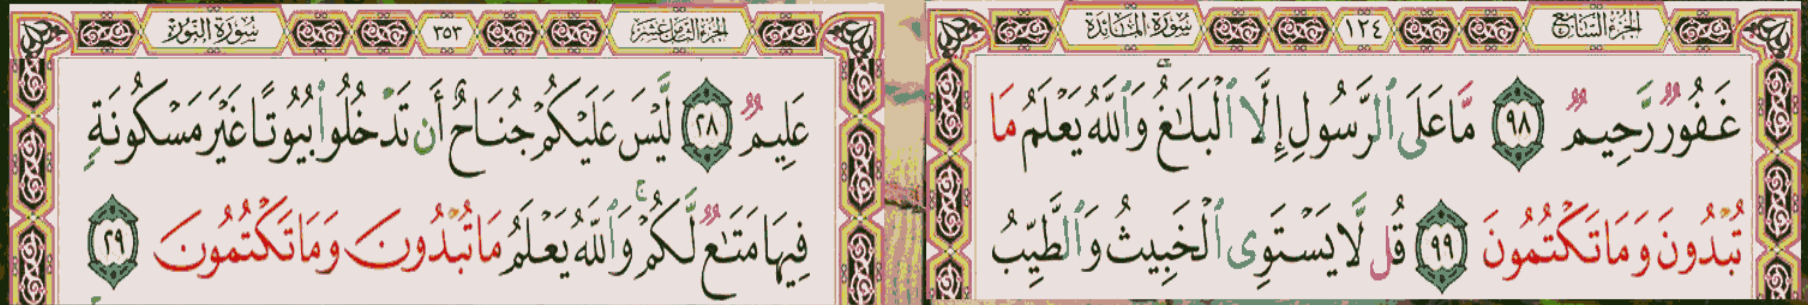 الجزء السابع
١٢٤
سورة المائدة
غَفُورٌ رَّحِيمٌ ٩٨ مَّا عَلَى ٱلرَّسُولِ إِلَّا ٱلْبَلَٰغُ وَٱللَّهُ يَعْلَمُ مَا
تُبْدُونَ وَمَا تَكْتُمُونَ ٩٩ قُل لَّا يَسْتَوِى ٱلْخَبِيثُ وَٱلطَّيِّبُ
الجزء الثامن عشر
٣٥٣
سورة النور
عَلِيمٌ ٢٨ لَّيْسَ عَلَيْكُمْ جُنَاحٌ أَن تَدْخُلُوا۟ بُيُوتًا غَيْرَ مَسْكُونَةٍ
فِيهَا مَتَٰعٌ لَّكُمْ ۚ وَٱللَّهُ يَعْلَمُ مَا تُبْدُونَ وَمَا تَكْتُمُونَ ٢٩